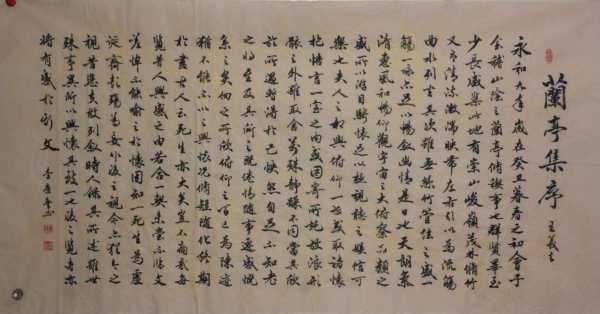 蘭亭集序 王羲之
永和九年歲在癸丑暮春之初會于
會稽山陰之蘭亭脩稧事也群賢畢至
少長咸集此地有崇山峻嶺茂林脩竹
又有清流激湍映帶左右引以為流觴
曲水列坐其次雖無絲竹管弦之盛一
觴一詠亦足以暢敘幽情是日也天朗氣
清惠風和暢仰觀宇宙之大俯察品類之
盛所以游目騁懷足以極視聽之娛信可
樂也夫人之相與俯仰一世或取諸懷
抱悟言一室之內或因寄所託放浪形
骸之外雖取舍萬殊靜躁不同當其欣
於所遇暫得於己快然自足不知老
之將至及其所之既倦情隨事遷感慨
係之矣向之所欣俯仰之間已為陳迹
猶不能不以之興懷況脩短隨化終期
於盡古人云死生亦大矣豈不痛哉每
覽昔人興感之由若合一契未嘗不臨文
嗟悼不能喻之於懷固知一死生為虛
誕齊彭殤為妄作後之視今亦猶今之
視昔悲夫故列敘時人錄其所述雖世
殊事異所以興懷其致一也後之覽者亦
將有感於斯文